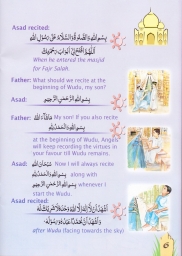 Asad recited:
بِسْمِ اللهِ وَالصَّلَاةُ وَالسَّلَامُ عَلٰى رَسُوْلِ اللهِ
اَللّٰهُمَّ افْتَحْ لِيْ اَبْوَابَ رَحْمَتِكَ
When he entered the masjid
for Fajr Salah.
Father: What should we recite at the
beginning of Wudu, my son?
Asad: بِسْمِ اللهِ الرَّحْمٰنِ الرَّحِيْمِ
Father: مَاشَآءَ اللهُ My son! If you also recite
بِسْمِ اللهِ وَالْحَمْدُ لِلّٰهِ
at the beginning of Wudu, Angels
will keep recording the virtues in
your favour till Wudu remains.
Asad: سُبْحَانَ اللهِ Now I will always recite
بِسْمِ اللهِ وَالْحَمْدُ لِلّٰهِ along with
بِسْمِ اللهِ الرَّحْمٰنِ الرَّحِيْمِ whenever I
start the Wudu.
Asad recited:
اَشْهَدُ اَنْ لَّا اِلٰهَ اِلَّا اللهُ وَحْدَهٗ لَا شَرِيْكَ لَهٗ
وَاَشْهَدُ اَنَّ مُحَمَّدًا عَبْدُهٗ وَرَسُوْلُهٗ
after Wudu (facing towards the sky)
6